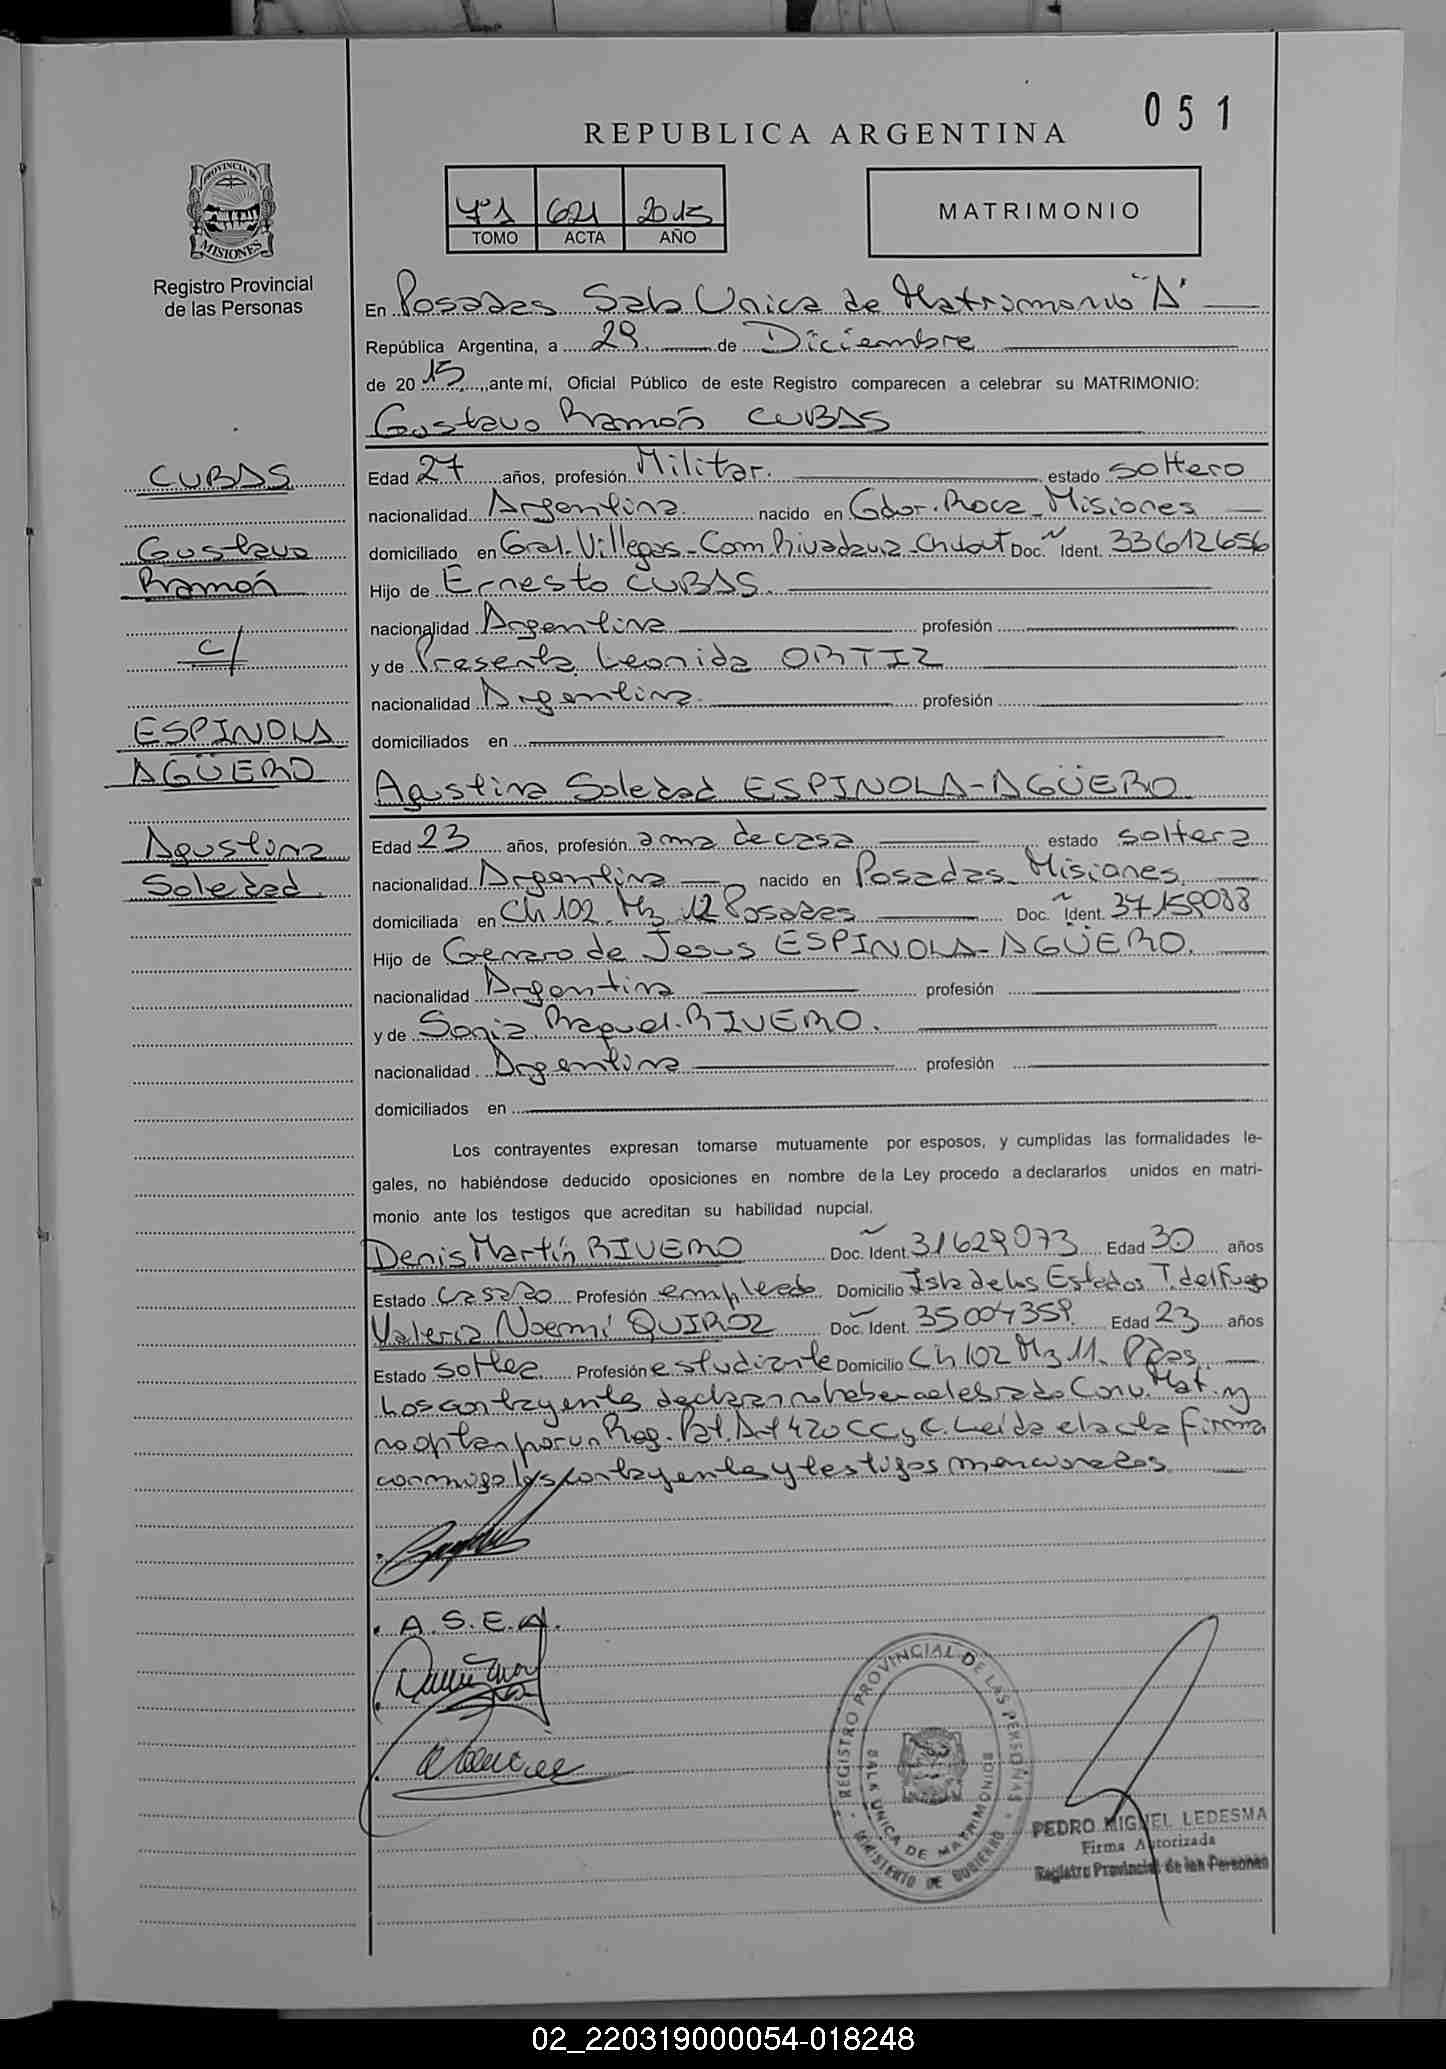 051
REPUBLICA ARGENTINA
PROVINCIA DE
MISIONES
Registro Provincial
de las Personas
621 2015
TOMO ACTA AÑO
MATRIMONIO
En Posadas Sala Unica de Matrimonio "A"
República Argentina, a 29 de Diciembre
de 2015, ante mí, Oficial Público de este Registro comparecen a celebrar su MATRIMONIO:
Gustavo Ramón CUBAS
CUBAS
Gustavo
Ramón
c/
ESPINOLA
AGÜERO
Agustina
Soledad
Edad 27 años, profesión Militar. estado soltero
nacionalidad Argentina nacido en Gdor. Roca - Misiones
domiciliado en Gral. Villegas - Com. Rivadavia - Chubut Doc. Ident. 33612656
Hijo de Ernesto CUBAS.
nacionalidad Argentina profesión
y de Presenta Leonida ORTIZ
nacionalidad Argentina. profesión
domiciliados en
Agustina Soledad ESPINOLA-AGÜERO
Edad 23 años, profesión ama de casa estado soltera
nacionalidad Argentina nacido en Posadas - Misiones
domiciliada en Ch 102 Mz 12 Posadas Doc. Ident. 37159088
Hijo de Genaro de Jesus ESPINOLA-AGÜERO.
nacionalidad Argentina profesión
y de Sonia Raquel RIVERO.
nacionalidad Argentina profesión
domiciliados en
Los contrayentes expresan tomarse mutuamente por esposos, y cumplidas las formalidades le-
gales, no habiéndose deducido oposiciones en nombre de la Ley procedo a declararlos unidos en matri-
monio ante los testigos que acreditan su habilidad nupcial.
Denis Martín RIVERO Doc. Ident. 31629073 Edad 30 años
Estado casado Profesión empleado Domicilio Isla de los Estados T. del Fuego
Valeria Noemí QUIROZ Doc. Ident. 35004359 Edad 23 años
Estado soltera Profesión estudiante Domicilio Ch 102 Mz 11. Pdas.
Los contrayentes declaran no haber celebrado Conv. Mat. y
no optan por un Reg. Pat. Art 420 CC y C. Leída el acta firman
conmigo los contrayentes y testigos mencionados.
A.S.E.A.
REGISTRO PROVINCIAL DE LAS PERSONAS
SALA UNICA DE MATRIMONIOS
MINISTERIO DE GOBIERNO
PEDRO MIGUEL LEDESMA
Firma Autorizada
Registro Provincial de las Personas
02_220319000054-018248